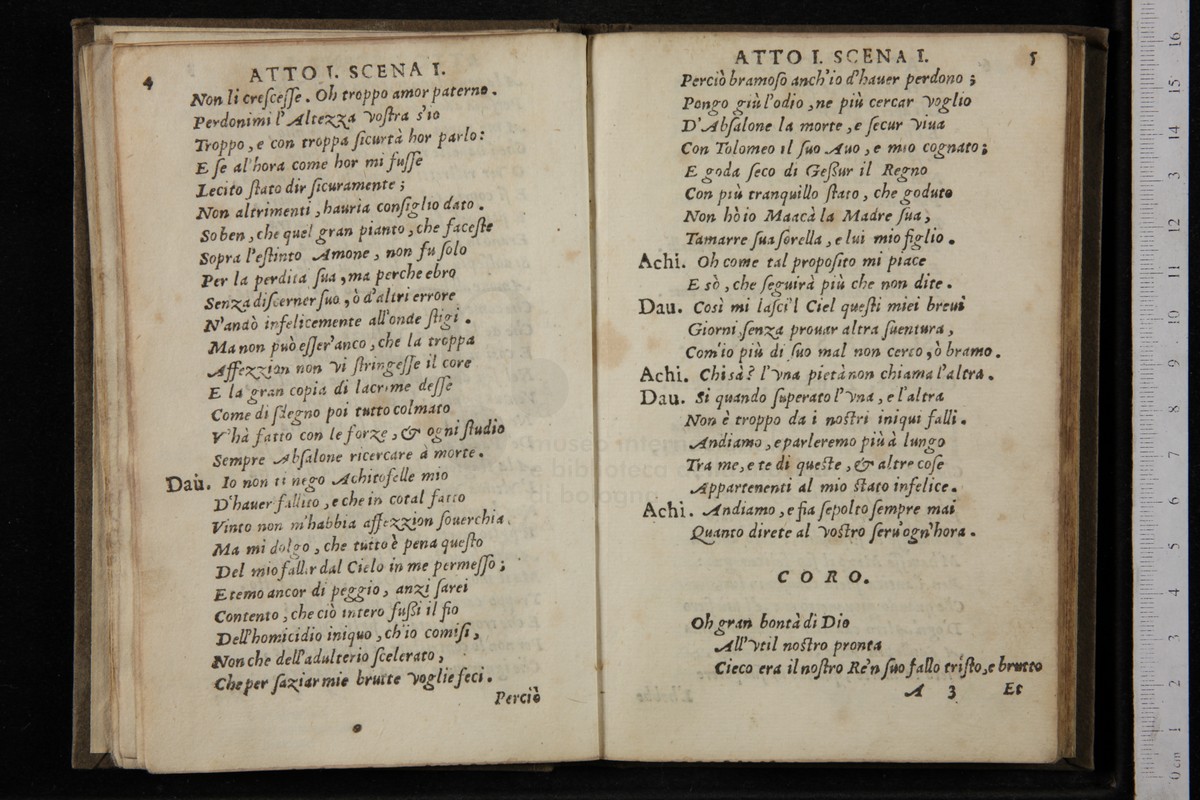 4
ATTO I. SCENA I.
Non li cresceſſe. Oh troppo amor paterno.
Perdonimi l'Altezza voſtra s'io
Troppo, e con troppa ſicurtà hor parlo:
E ſe al'hora come hor mi fuſſe
Lecito ſtato dir ſicuramente;
Non altrimenti, hauria conſiglio dato.
So ben, che quel gran pianto, che faceſte
Sopra l'eſtinto Amone, non fu ſolo
Per la perdita ſua, ma perche ebro
Senza diſcerner ſuo, ò d'altri errore
N'andò infelicemente all'onde ſtigi.
Ma non può eſſer'anco, che la troppa
Affezzion non vi ſtringeſſe il core
E la gran copia di lacrime deſſe
Come di ſdegno poi tutto colmato
V'hà fatto con le forze, & ogni ſtudio
Sempre Abſalone ricercare à morte.
Dau. Io non ti nego Achitofelle mio
D'hauer fallito, e che in cotal fatto
Vinto non m'habbia affezzion ſouerchia.
Ma mi dolgo, che tutto è pena queſto
Del mio fallir dal Cielo in me permeſſo;
E temo ancor di peggio, anzi ſarei
Contento, che ciò intero fuſſi il fio
Dell'homicidio iniquo, ch'io comiſi,
Non che dell'adulterio ſcelerato,
Che per ſaziar mie brutte voglie feci.
Perciò
ATTO I. SCENA I.
5
Perciò bramoſo anch'io d'hauer perdono;
Pongo giù l'odio, ne più cercar voglio
D'Abſalone la morte, e ſecur viua
Con Tolomeo il ſuo Auo, e mio cognato;
E goda ſeco di Geſſur il Regno
Con più tranquillo ſtato, che goduto
Non hò io Maacà la Madre ſua,
Tamarre ſua ſorella, e lui mio figlio.
Achi. Oh come tal propoſito mi piace
E sò, che ſeguirà più che non dite.
Dau. Così mi laſci'l Ciel queſti miei breui
Giorni ſenza prouar altra ſuentura,
Com'io più di ſuo mal non cerco, ò bramo.
Achi. Chi sà? l'vna pietà non chiama l'altra.
Dau. Si quando ſuperato l'vna, e l'altra
Non è troppo da i noſtri iniqui falli.
Andiamo, e parleremo più à lungo
Tra me, e te di queſte, & altre coſe
Appartenenti al mio ſtato infelice.
Achi. Andiamo, e ſia ſepolto ſempre mai
Quanto direte al voſtro ſeru'ogn'hora.
CORO.
Oh gran bontà di Dio
All'vtil noſtro pronta
Cieco era il noſtro Re'n ſuo fallo triſto, e brutto
A 3 Et